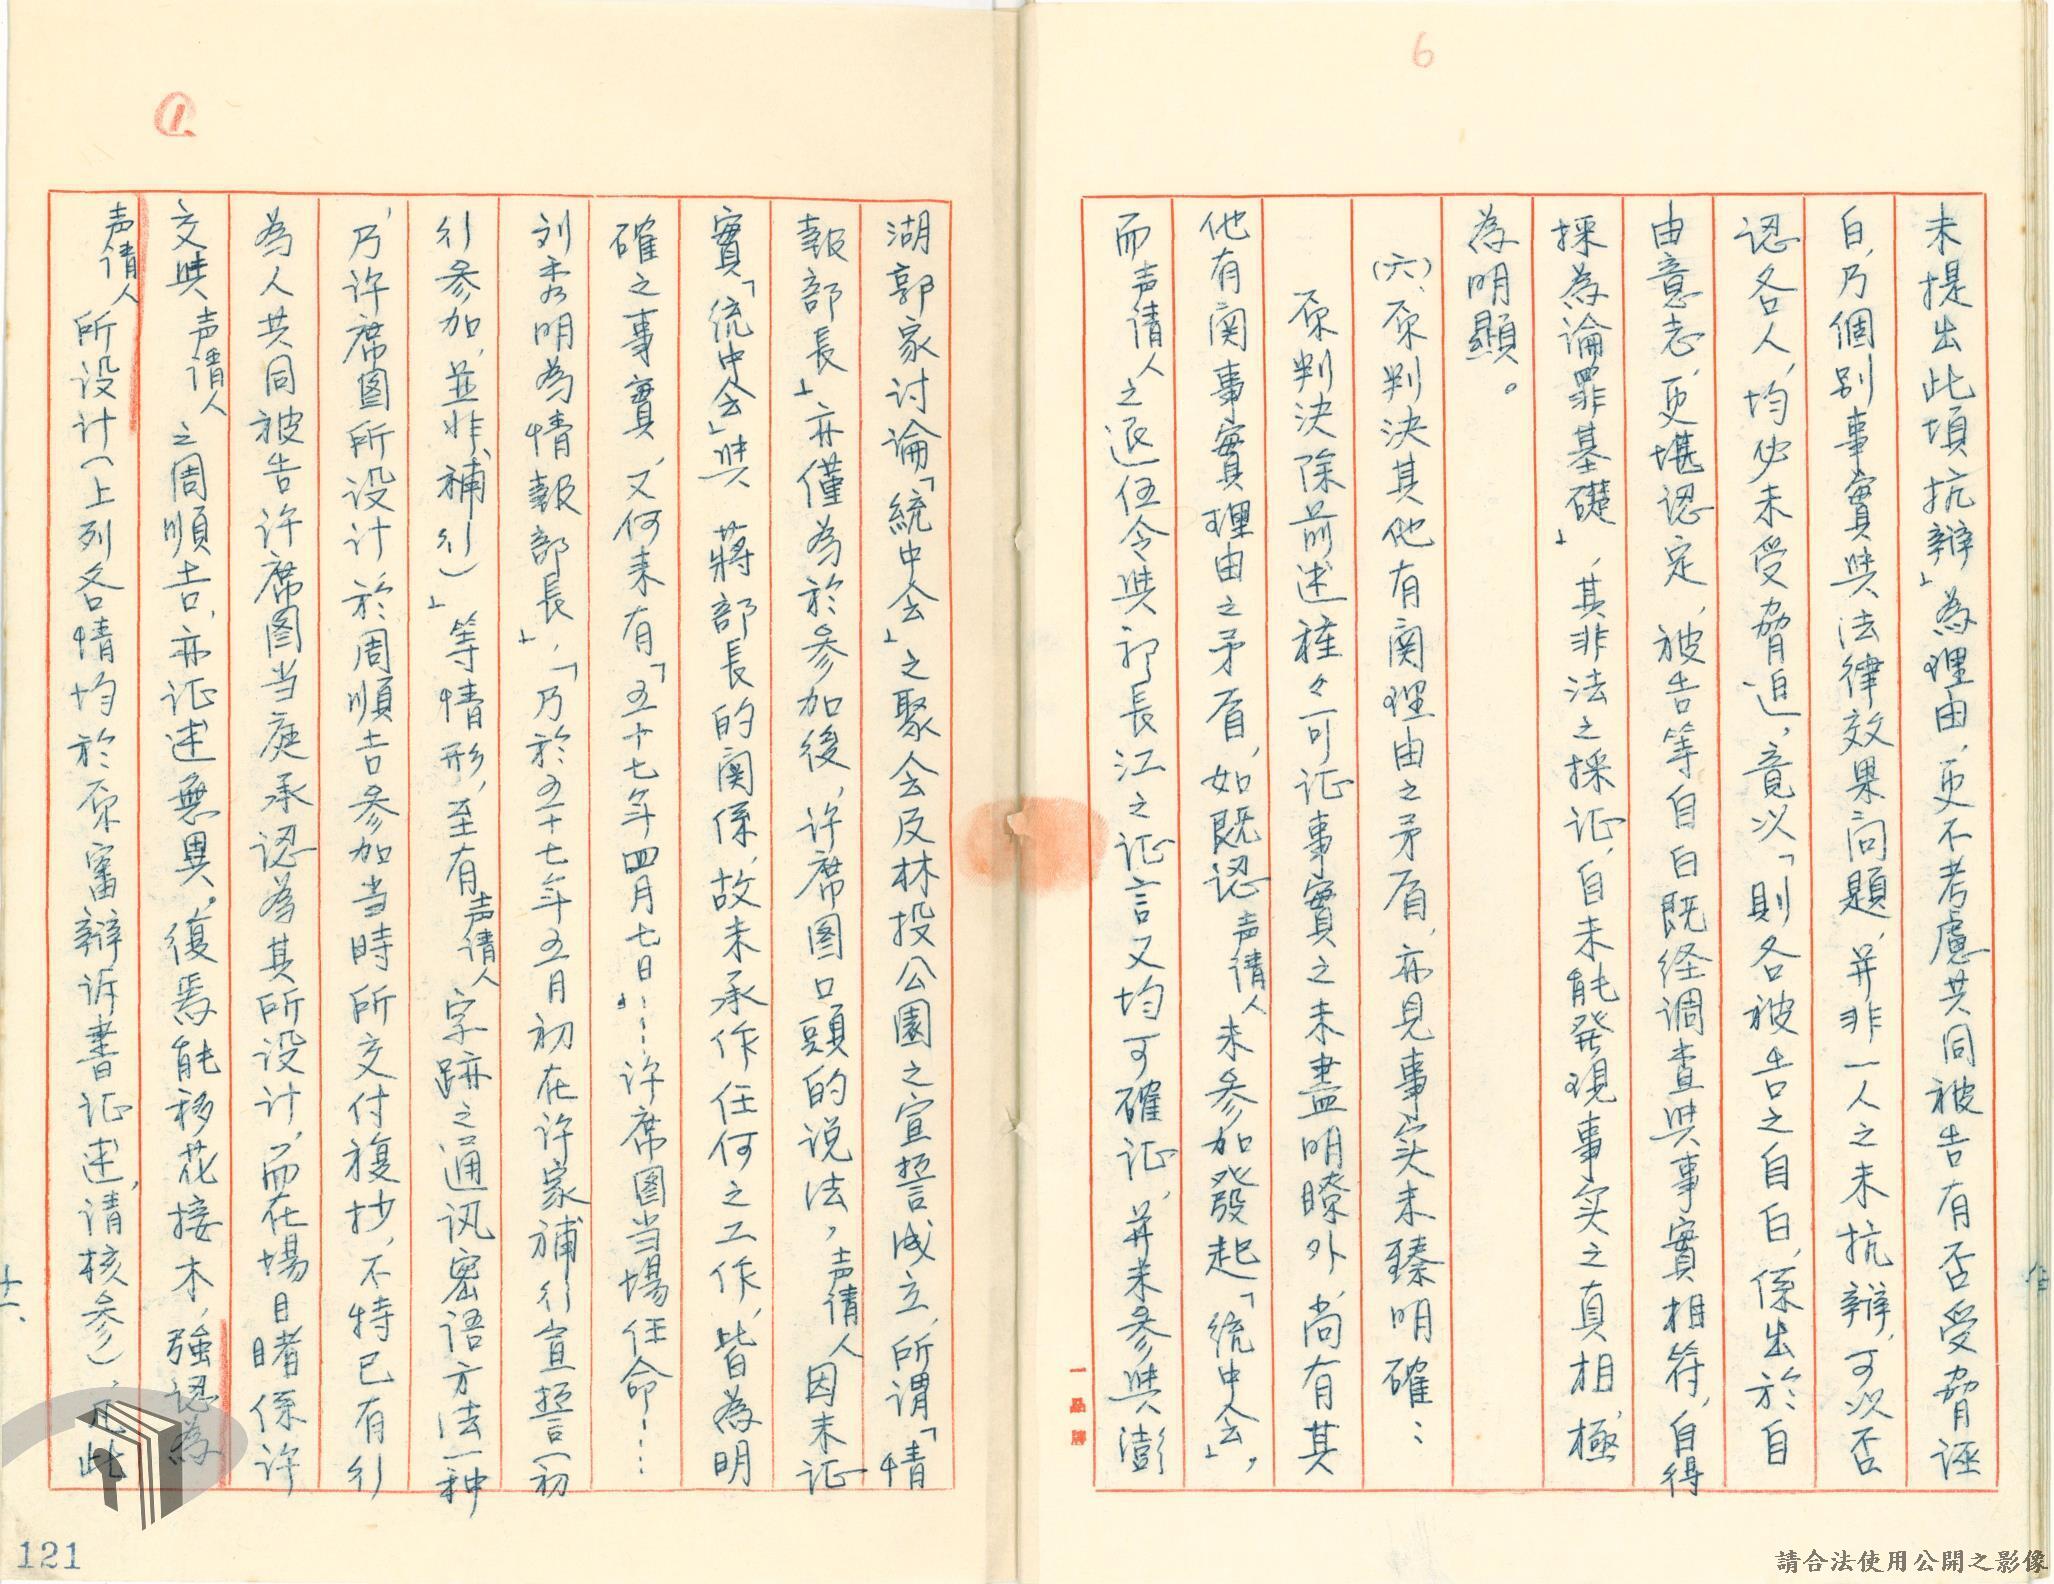 6
未提出此項抗辯」為理由，更不考慮共同被告有否受脅誣
白，乃個别事實與法律效果问題，并非一人之未抗辯，可以否
認各人，均必未受脅迫，竟以「則各被告之自白，係出於自
由意志，更堪認定，被告等自白既经調查與事實相符，自得
採為論罪基礎」，其非法之採证，自未能發現事实之真相，極
為明顯。
(六)、原判決其他有関理由之矛盾，亦見事实未臻明確：
原判決除前述種々可证事實之未盡明瞭外，尚有其
他有関事實理由之矛盾，如既認声請人未參加發起「统中会」，
而声請人之退伍令與祁長江之证言又均可確证，并未參與澎
一品牌
①
湖郭家讨論「統中会」之聚会及林投公園之宣誓成立，所谓「情
報部長」亦僅為於参加後，许席图口頭的说法，声請人因未证
實「统中会」與 蔣部長的関係，故未承作任何之工作，皆為明
確之事實，又何来有「五十七年四月七日」……许席图当場任命……
刘秀明為情報部長」，「乃於五十七年五月初在许家補行宣誓（初
行参加，並非補行）」等情形，至有声請人字跡之通讯密语方法一种
，乃许席图所设计，於周順吉参加当時所交付複抄，不特已有行
為人共同被告许席图当庭承認為其所设计，而在場目睹係许
交與声請人之周順吉，亦证述無異。復焉能移花接木，強認為
声請人所设计（上列各情均於原審辯诉書证述，请核参），凡此
十一、
121
請合法使用公開之影像